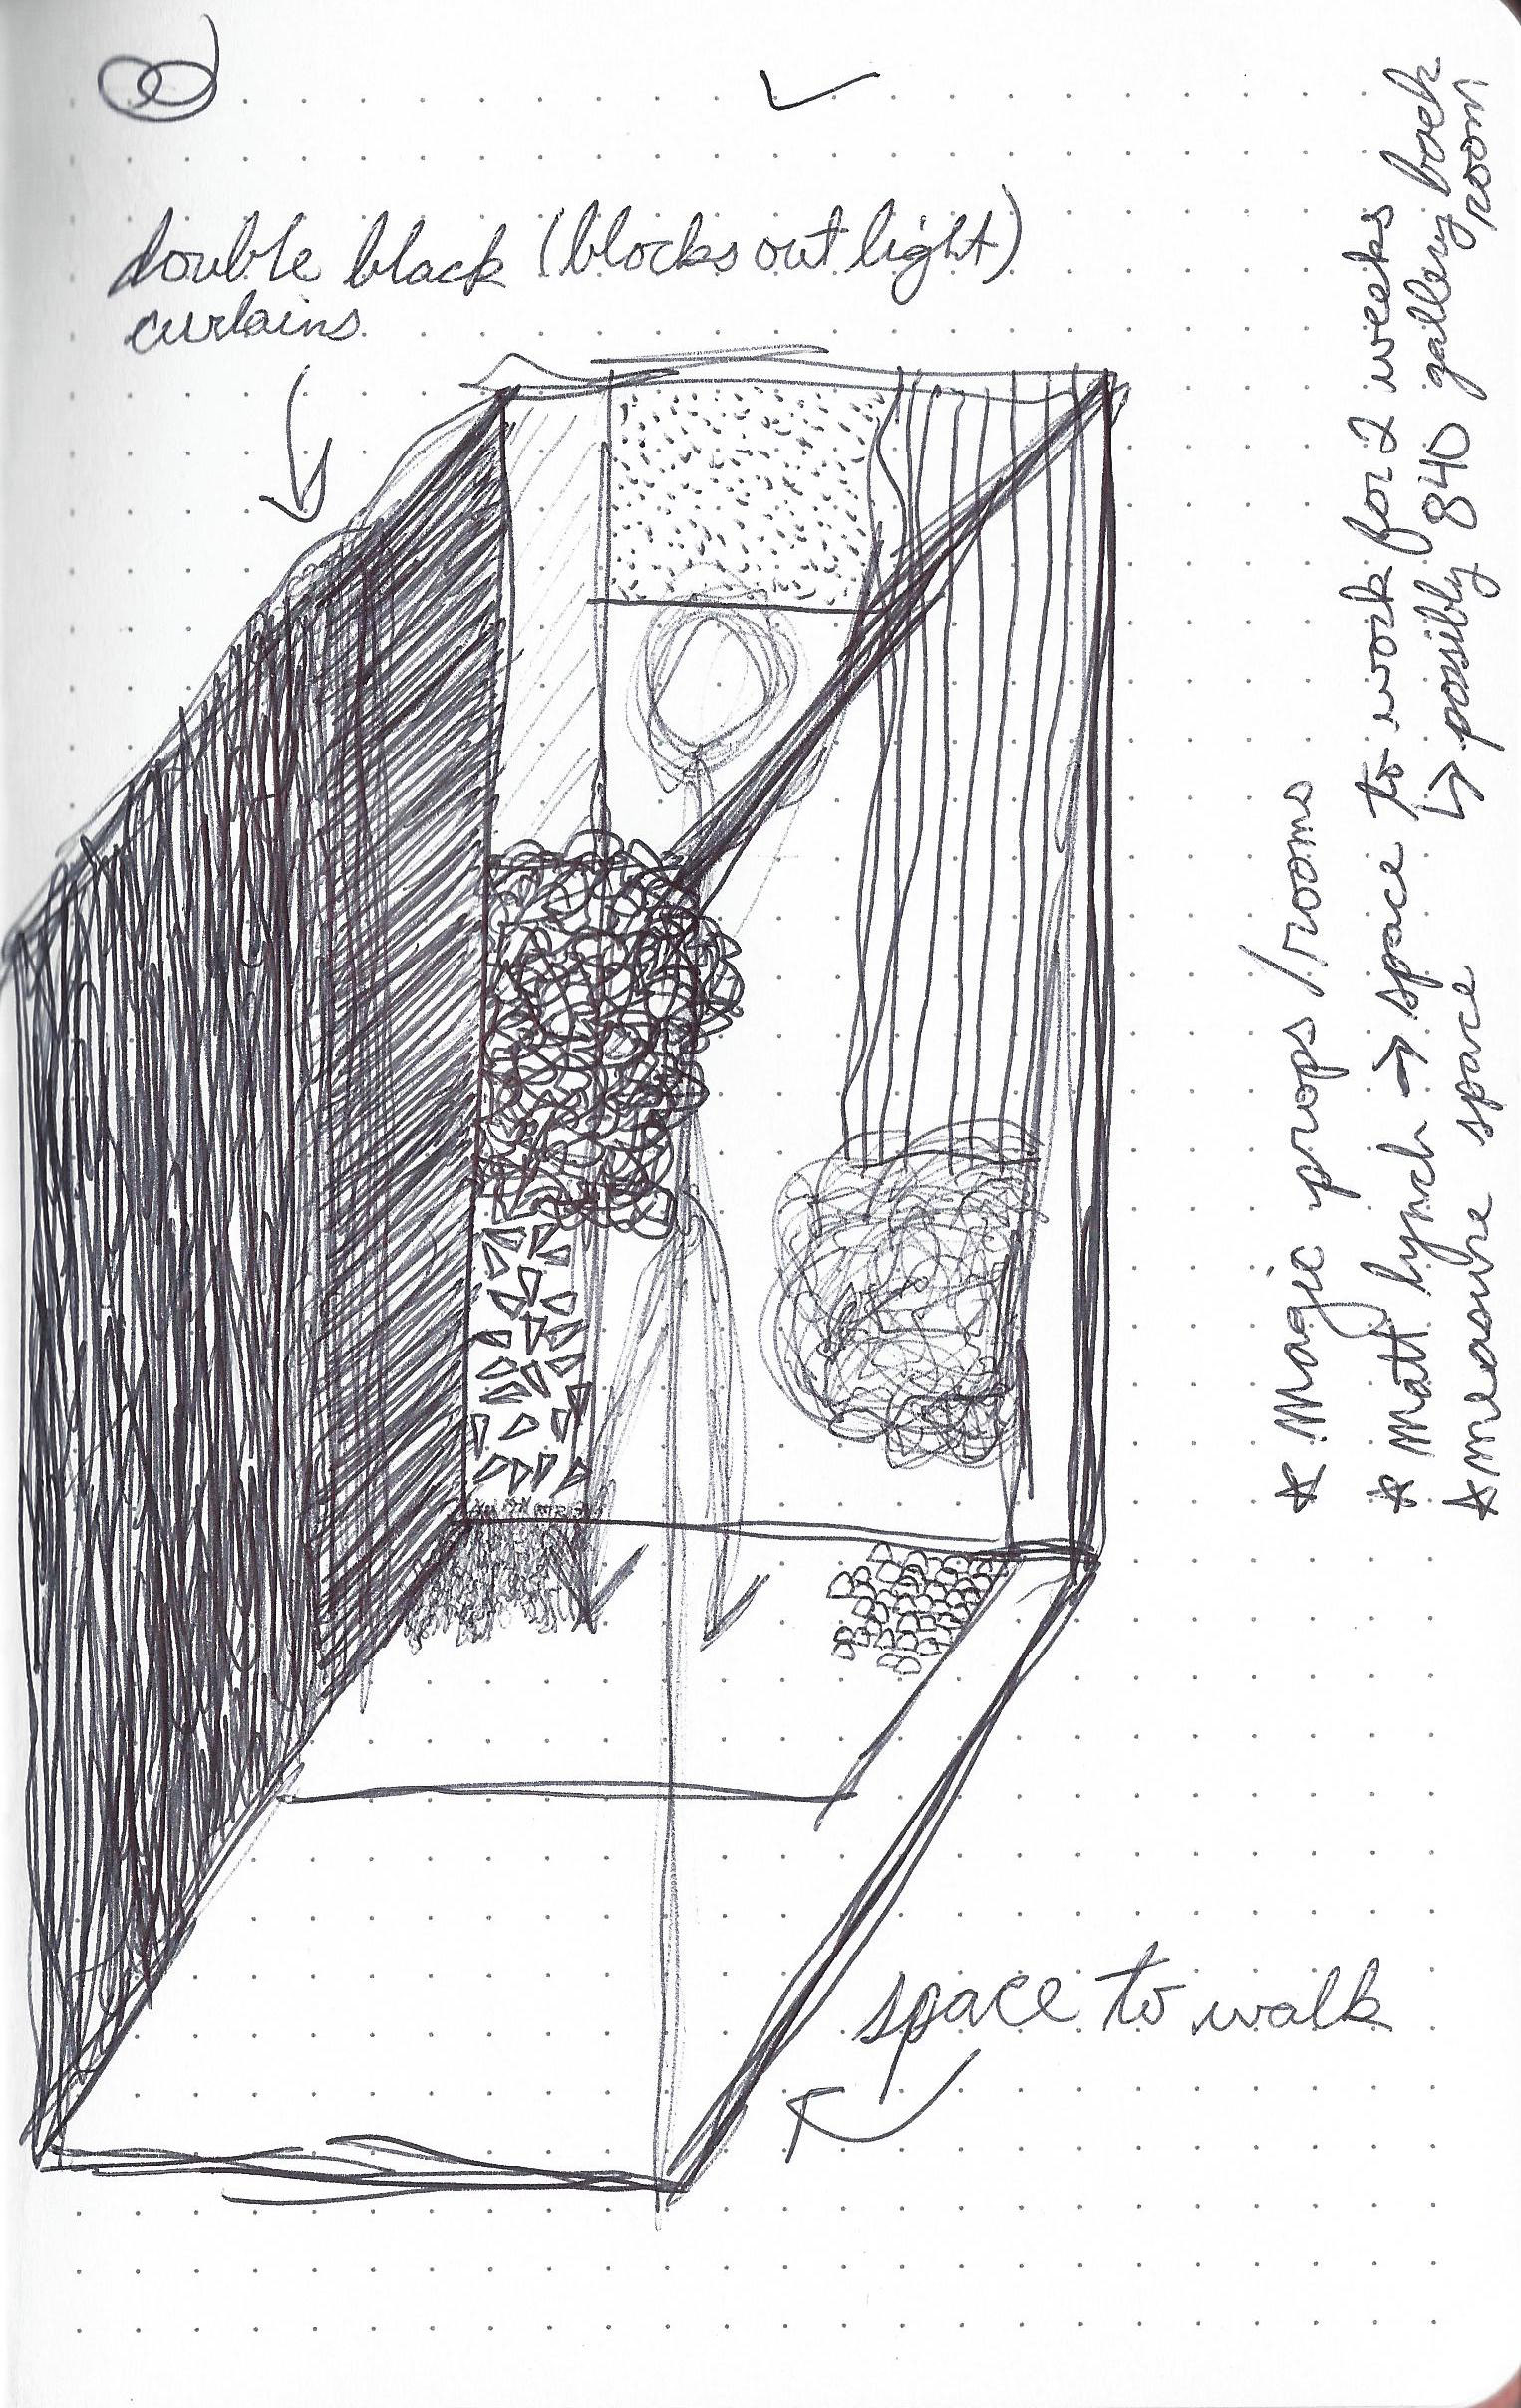 double black (blocks out light)
curtains
space to walk
* Magic props/rooms
* Matt Lynch → space to work for 2 weeks
↳ possibly 840 gallery back
room
* measure space